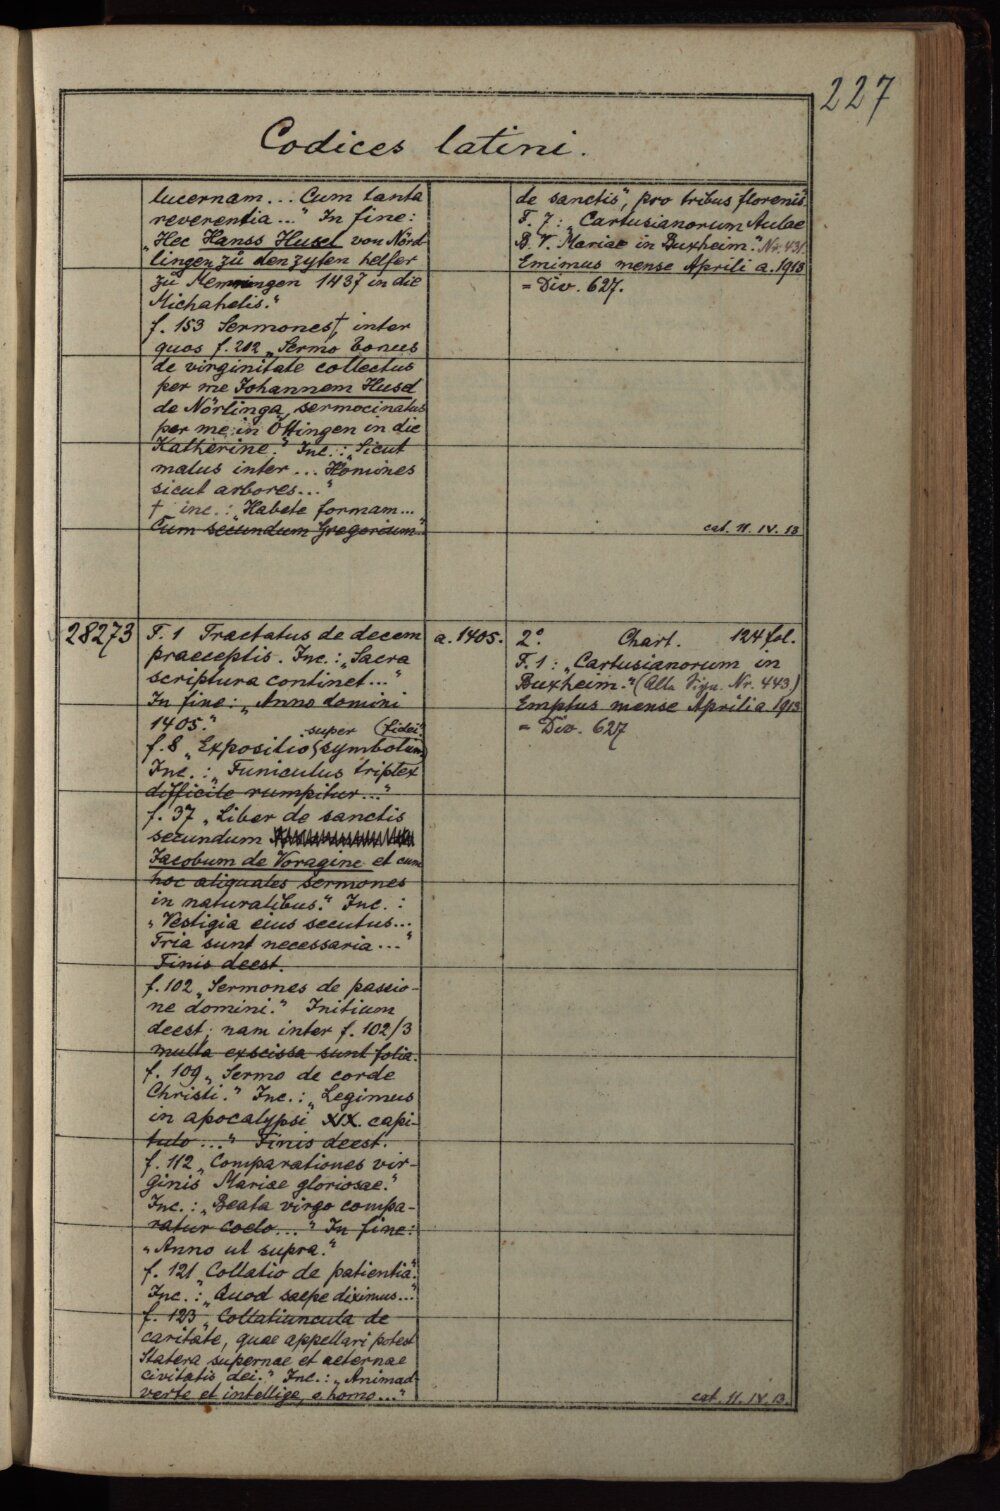 227
Codices latini.
lucernam... Cum tanta
reverentia..." In fine:
"Hec Hanss Husel von Nörd-
lingen zů den zyten helfer
zů Memmingen 1437 in die
Michahelis."
f. 153 Sermones†, inter
quos f. 212 "Sermo bonus
de virginitate collectus
per me Johannem Husel
de Nörlinga, sermocinatus
per me in Öttingen in die
Katherine." Inc.: "Sicut
malus inter... Homines
sicut arbores..."
† inc.: "Habete formam...
Cum secundum Gregorium."
de sanctis", pro tribus florenis."
F. 7: "Cartusianorum Aulae
B. V. Mariae in Buxheim." Nr. 431
Emimus mense Aprili a. 1913
= Div. 627.
cat. 11. IV. 13
28273
F. 1 Tractatus de decem
praeceptis. Inc.: "Sacra
scriptura continet..."
In fine: "Anno domini
1405."
f. 8 "Expositio super symbolum fidei."
Inc.: "Funiculus triplex
difficile rumpitur..."
f. 37 "Liber de sanctis
secundum
Jacobum de Voragine et cum
hoc aliquales sermones
in naturalibus." Inc.:
"Vestigia eius secutus...
Tria sunt necessaria..."
Finis deest.
f. 102 "Sermones de passio-
ne domini." Initium
deest; nam inter f. 102/3
multa excissa sunt folia.
f. 109 "Sermo de corde
Christi." Inc.: "Legimus
in apocalypsi XIX. capi-
tulo..." Finis deest.
f. 112 "Comparationes vir-
ginis Mariae gloriosae."
Inc.: "Beata virgo compa-
ratur coelo..." In fine:
"Anno ut supra."
f. 121 "Collatio de patientia."
Inc.: "Quod saepe diximus..."
f. 123 "Collatiuncula de
caritate, quae appellari potest
Statera supernae et aeternae
civitatis dei." Inc.: "Animad-
verte et intellige, o homo..."
a. 1405.
2°. Chart. 124 fol.
F. 1: "Cartusianorum in
Buxheim." (Alte Sign. Nr. 443)
Emptus mense Aprili a 1913
= Div. 627
cat. 11. IV. 13.